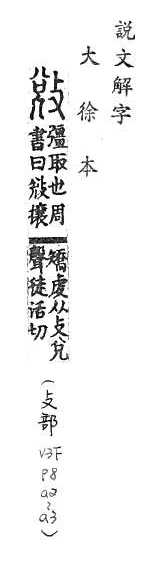 說文解字
大徐本
敓彊取也周
書曰敓攘
矯虔从攴兌
聲徒活切
(攴部
V3F
P8
a2
~
a3)